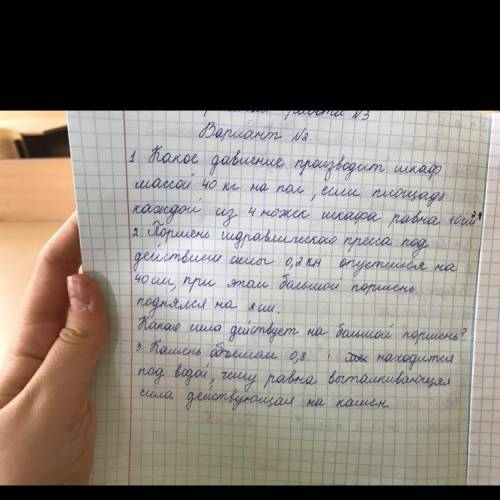 работа N3
Вариант N2
1. Какое давление производит шкаф
массой 40 кг на пол, если площадь
каждой из 4 ножек шкафа равна 10см²?
2. Поршень гидравлического пресса под
действием силы 0,2 кН опустился на
40 см, при этом большой поршень
поднялся на 8 см.
Какая сила действует на большой поршень?
3. Камень объемом 0,8 находится
под водой, чему равна выталкивающая
сила действующая на камен